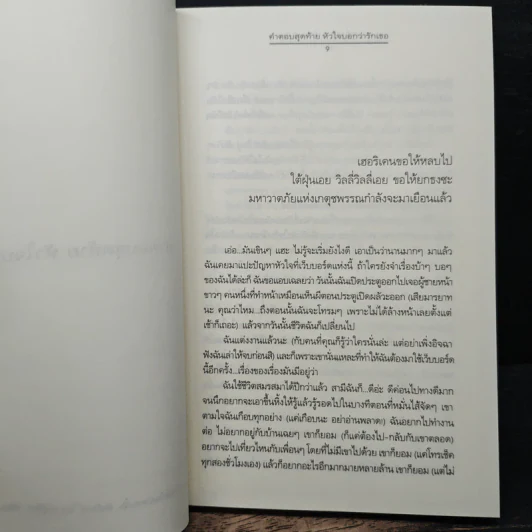 คำตอบสุดท้าย หัวใจบอกว่ารักเธอ
9
เฮอริเคนขอให้หลบไป
ไต้ฝุ่นเอย วิลลี่วิลลี่เอย ขอให้ยกธงซะ
มหาวาตภัยแห่งเกตุชพรรณกำลังจะมาเยือนแล้ว
เอ่อ...มันเขินๆ แฮะ ไม่รู้จะเริ่มยังไงดี เอาเป็นว่านานมากๆ มาแล้ว
ฉันเคยมาแปะปัญหาหัวใจที่เว็บบอร์ดแห่งนี้ ถ้าใครยังจำเรื่องบ้าๆ บอๆ
ของฉันได้ล่ะก็ ฉันขอแอบเฉลยว่า วันนั้นฉันเปิดประตูออกไปเจอผู้ชายหน้า
ขาวๆ คนหนึ่งที่ทำหน้าเหมือนเห็นผีตอนประตูเปิดผลัวะออก (เสียมารยาท
นะ คุณว่าไหม...ถึงตอนนั้นฉันจะโทรมๆ เพราะไม่ได้ล้างหน้าเลยตั้งแต่
เช้าก็เถอะ) แล้วจากวันนั้นชีวิตฉันก็เปลี่ยนไป
ฉันแต่งงานแล้วนะ (กับคนที่คุณก็รู้ว่าใครนั่นล่ะ แต่อย่าเพิ่งอิจฉา
ฟังฉันเล่าให้จบก่อนสิ) และก็เพราะเขานั่นแหละที่ทำให้ฉันต้องมาใช้เว็บบอร์ด
นี้อีกครั้ง...เรื่องของเรื่องมันมีอยู่ว่า
ฉันใช้ชีวิตสมรสมาได้ปีกว่าแล้ว สามีฉันก็...ดีอ่ะ ดีค่อนไปทางดีมาก
จนนึกอยากจะเอาขึ้นหิ้งให้รู้แล้วรู้รอดไปในบางทีตอนที่หมั่นไส้จัดๆ เขา
ตามใจฉันเกือบทุกอย่าง (แค่เกือบนะ อย่าอ่านพลาด!) ฉันอยากไปทำงาน
ต่อ ไม่อยากอยู่กับบ้านเฉยๆ เขาก็ยอม (ก็แค่ต้องไป-กลับกับเขาตลอด)
อยากจะไปเที่ยวไหนกับเพื่อนๆ โดยที่ไม่มีเขาไปด้วย เขาก็ยอม (แค่โทรเช็ค
ทุกสองชั่วโมงเอง) แล้วก็อยากอะไรอีกมากมายหลายล้าน เขาก็ยอม (แต่ไม่